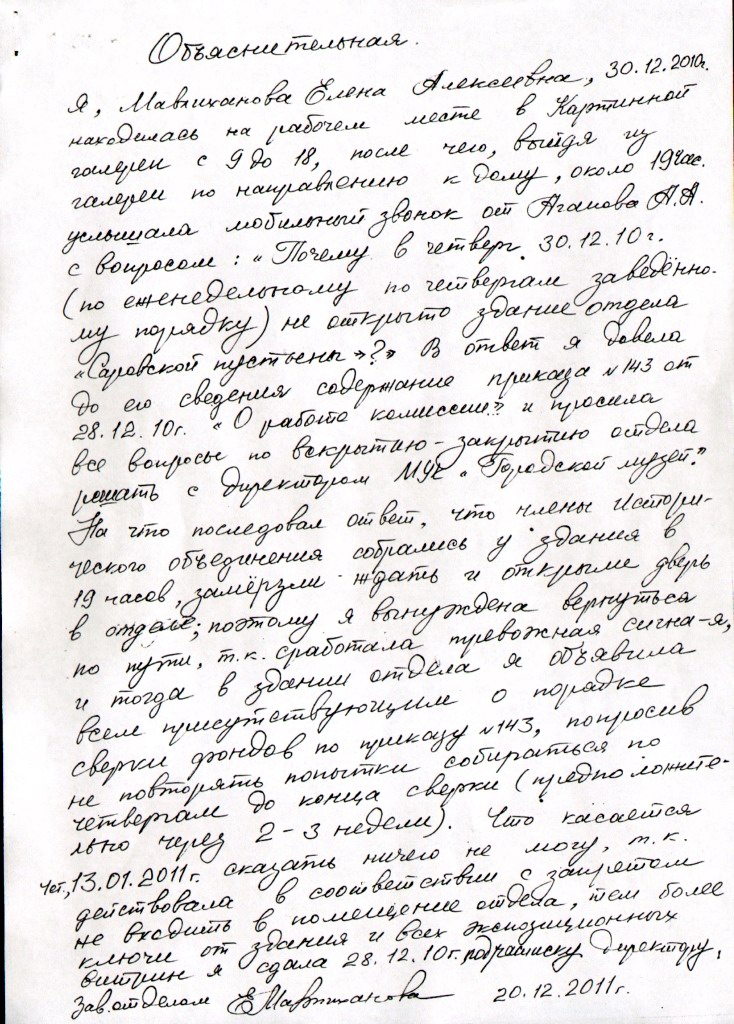 Объяснительная.
Я, Мавлиханова Елена Алексеевна, 30.12.2010г.
находилась на рабочем месте в Картинной
галереи с 9 до 18, после чего, выйдя из
галереи по направлению к дому, около 19 час.
услышала мобильный звонок от Агапова А.А.
с вопросом: "Почему в четверг 30.12.10г.
(по еженедельному по четвергам заведённо-
му порядку) не открыто здание отдела
"Саровской пустыни"?" В ответ я довела
до его сведения содержание приказа №143 от
28.12.10г. "О работе комиссии" и просила
все вопросы по вскрытию-закрытию отдела
решать с директором МУК "Городской музей".
На что последовал ответ, что члены Истори-
ческого объединения собрались у здания в
19 часов, замёрзли ждать и открыли дверь
в отделе; поэтому я вынуждена вернуться
по пути, т.к. сработала тревожная сигна-я,
и тогда в здании отдела я объявила
всем присутствующим о порядке
сверки фондов по приказу №143, попросив
не повторять попытки собираться по
четвергам до конца сверки (предположите-
льно через 2-3 недели). Что касается
Чет., 13.01.2011г. сказать ничего не могу, т.к.
действовала в соответствии с запретом
не входить в помещение отдела, тем более
ключи от здания и всех экспозиционных
витрин я сдала 28.12.10г. под расписку директору.
Зав.отделом ЕМавлиханова 20.12.2011г.